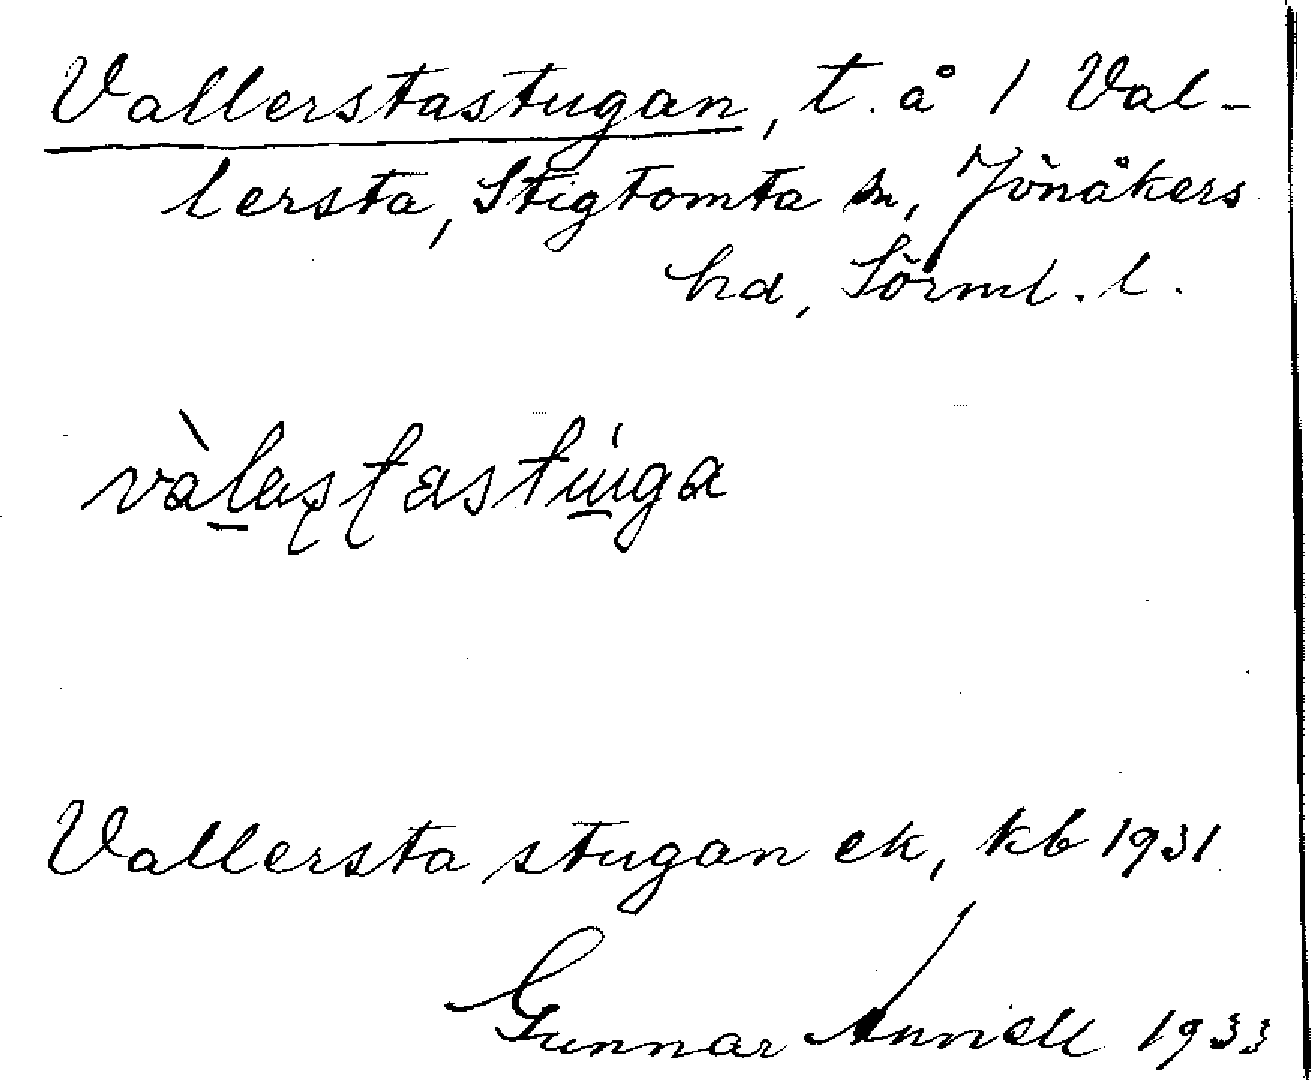 Vallerstastugan, t. å 1 Val-
lersta, Stigtomta sn, Jönåkers
hd, Sörml. l.
Vallersta stugan ek, kb 1931
Gunnar Annell 1933